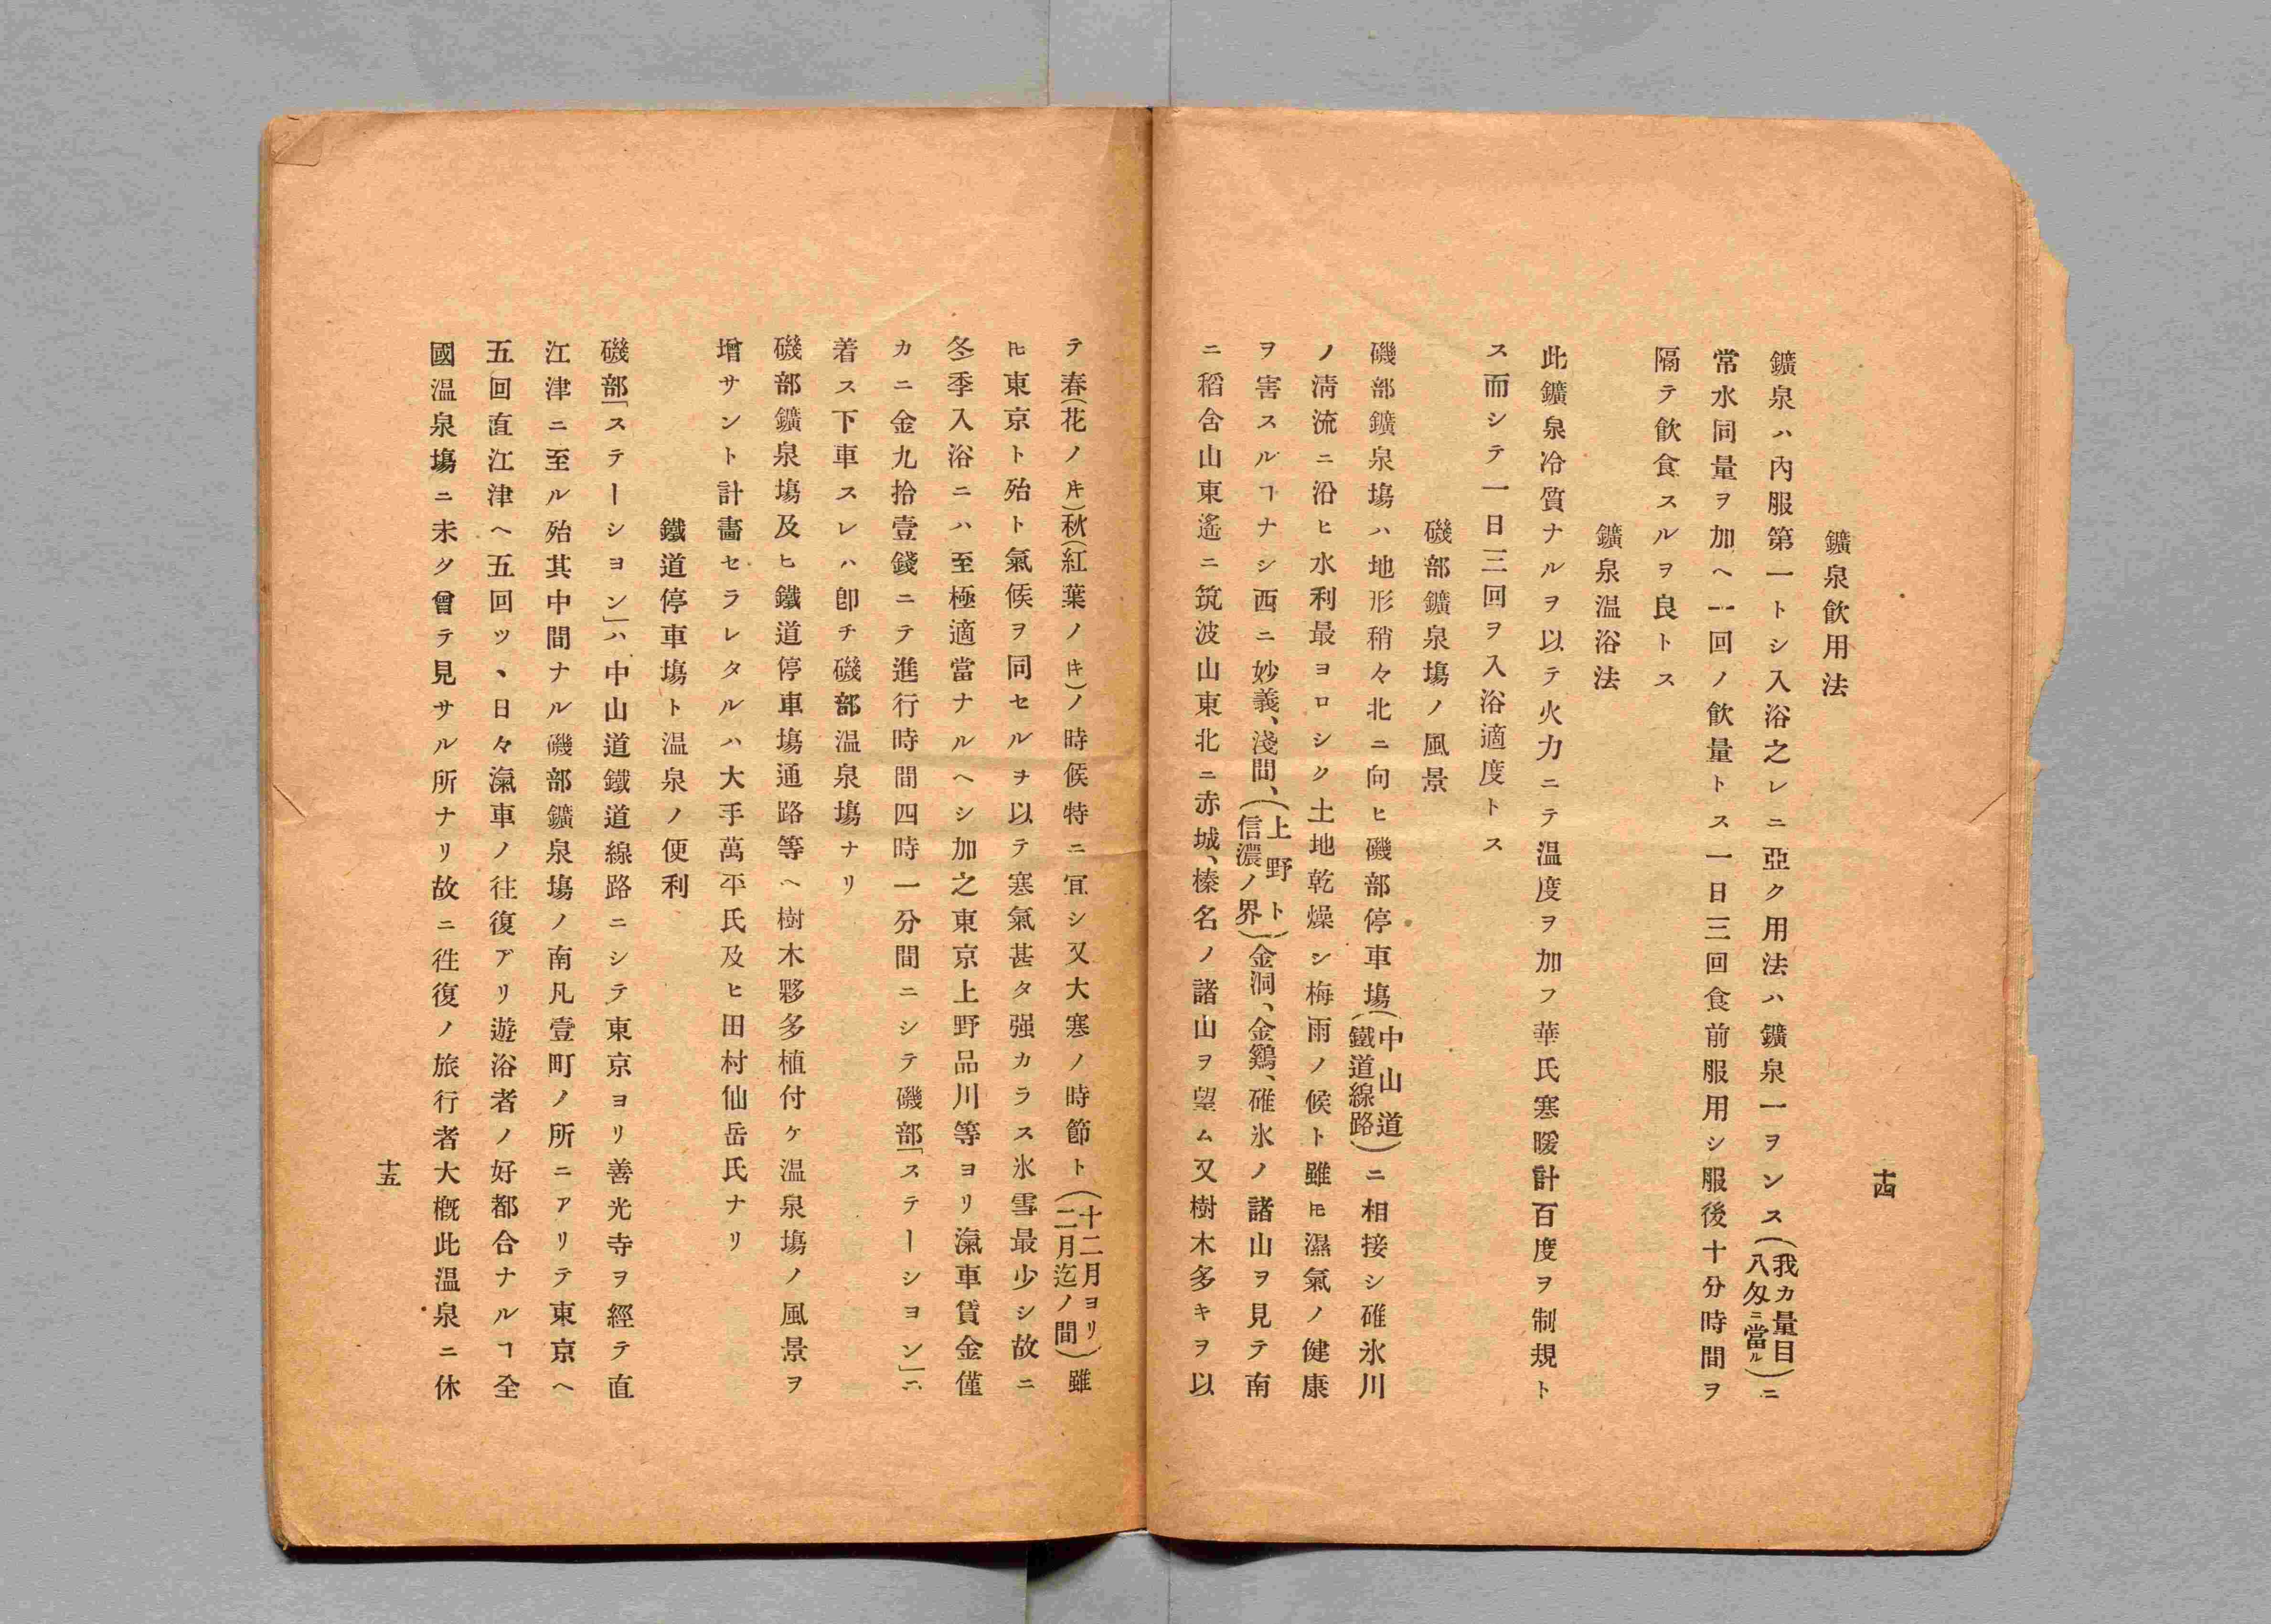 十四
鑛泉飮用法
鑛泉ハ內服第一トシ入浴之レニ亞ク用法ハ鑛泉一ヲンス(我カ量目八匁ニ當ル)ニ
常水同量ヲ加ヘ一回ノ飮量トス一日三回食前服用シ服後十分時間ヲ
隔テ飮食スルヲ良トス
鑛泉温浴法
此鑛泉冷質ナルヲ以テ火力ニテ温度ヲ加フ華氏寒暖計百度ヲ制規ト
ス而シテ一日三回ヲ入浴適度トス
磯部鑛泉塲ノ風景
磯部鑛泉塲ハ地形稍々北ニ向ヒ磯部停車塲(中山道鐵道線路)ニ相接シ碓氷川
ノ淸流ニ沿ヒ水利最ヨロシク土地乾燥シ梅雨ノ候ト雖𪜈濕氣ノ健康
ヲ害スルヿナシ西ニ妙義、淺間、(上野ト信濃ノ界)金洞、金鷄、碓氷ノ諸山ヲ見テ南
ニ稻含山東遙ニ筑波山東北ニ赤城、榛名ノ諸山ヲ望ム又樹木多キヲ以
テ春(花ノ𪜈)秋(紅葉ノ𪜈)ノ時候特ニ宜シ又大寒ノ時節ト(十二月ヨリ二月迄ノ間)雖
𪜈東京ト殆ト氣候ヲ同セルヲ以テ寒氣甚タ强カラス氷雪最少シ故ニ
冬季入浴ニハ至極適當ナルヘシ加之東京上野品川等ヨリ滊車賃金僅
カニ金九拾壹錢ニテ進行時間四時一分間ニシテ磯部「ステーシヨン」ニ
着ス下車スレハ卽チ磯部温泉塲ナリ
磯部鑛泉塲及ヒ鐵道停車塲通路等ヘ樹木夥多植付ケ温泉塲ノ風景ヲ
增サント計畵セラレタルハ大手萬平氏及ヒ田村仙岳氏ナリ
鐵道停車塲ト温泉ノ便利
磯部「ステーシヨン」ハ中山道鐵道線路ニシテ東京ヨリ善光寺ヲ經テ直
江津ニ至ル殆其中間ナル磯部鑛泉塲ノ南凡壹町ノ所ニアリテ東京ヘ
五回直江津ヘ五回ツヽ日々滊車ノ往復アリ遊浴者ノ好都合ナルヿ全
國温泉塲ニ未タ曾テ見サル所ナリ故ニ徃復ノ旅行者大槪此温泉ニ休
十五